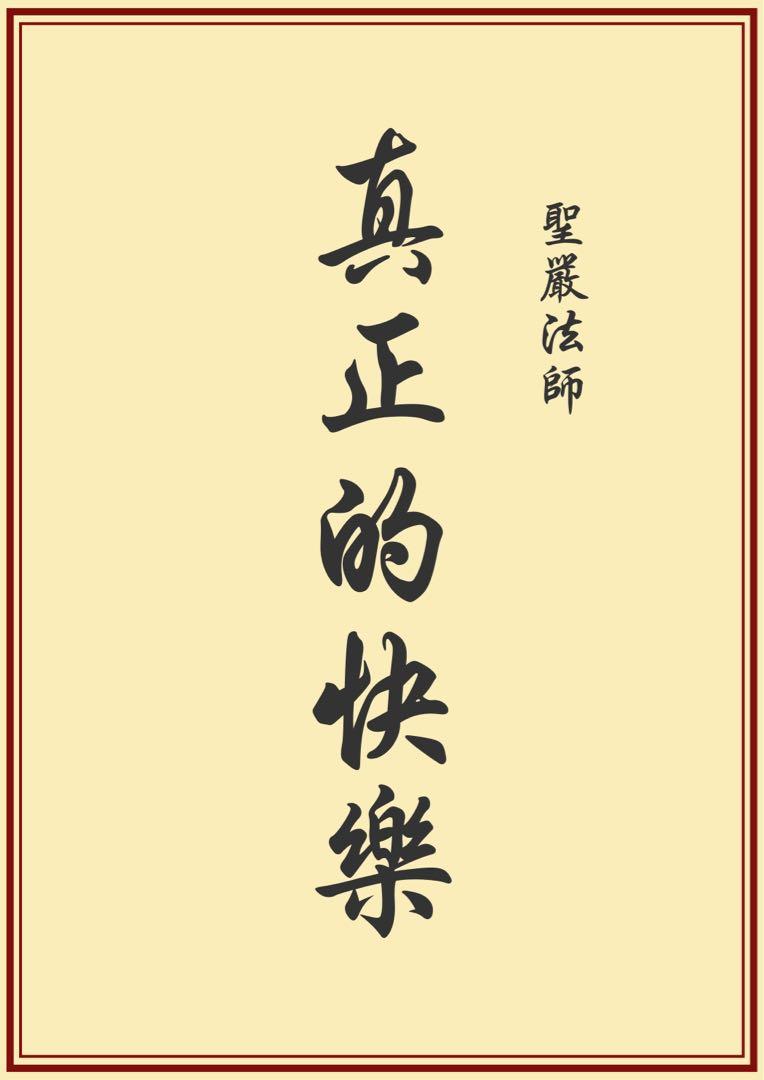 聖嚴法師
真正的快樂